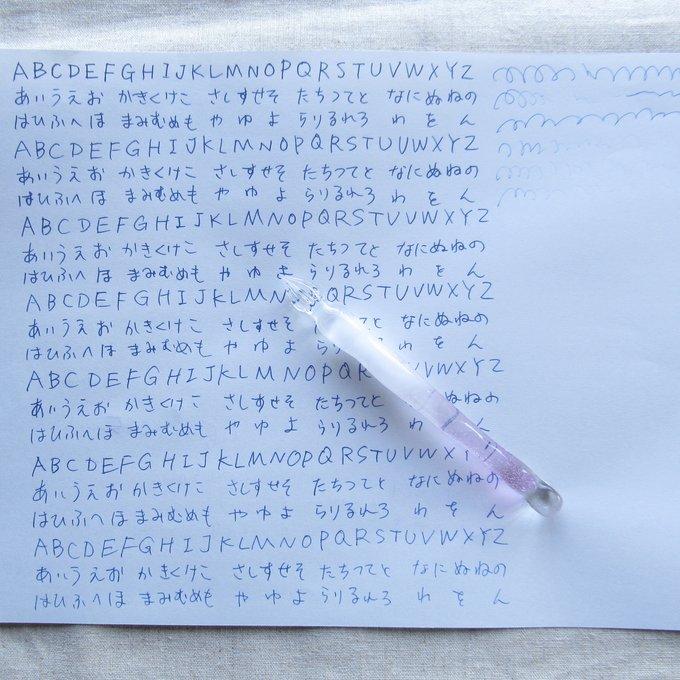 ABCDEFGHIJKLMNOPQRSTUVWXYZ
あいうえお かきくけこ さしすせそ たちつてと なにぬねの
はひふへほ まみむめも や ゆ よ らりるれろ わ を ん
ABCDEFGHIJKLMNOPQRSTUVWXYZ
あいうえお かきくけこ さしすせそ たちつてと なにぬねの
はひふへほ まみむめも や ゆ よ らりるれろ わ を ん
ABCDEFGHIJKLMNOPQRSTUVWXYZ
あいうえお かきくけこ さしすせそ たちつてと なにぬねの
はひふへほ まみむめも や ゆ よ らりるれろ わ を ん
ABCDEFGHIJKLMN QRSTUVWXYZ
あいうえお かきくけこ さしすせそ つてと なにぬねの
はひふへほ まみむめも や ゆ よ らり れろ わ を ん
ABCDEFGHIJKLMNOPQR TUVWXYZ
あいうえお かきくけこ さしすせそ たちつてと ぬねの
はひふへほ まみむめも や ゆ よ らりるれろ わ ん
ABCDEFGHIJKLMNOPQRSTUVWXYZ
あいうえお かきくけこ さしすせそ たちつてと なにぬねの
はひふへほ まみむめも や ゆ よ らりるれろ わ を ん
ABCDEFGHIJKLMNOPQRSTUVWXYZ
あいうえお かきくけこ さしすせそ たちつてと なにぬねの
はひふへほ まみむめも や ゆ よ らりるれろ わ を ん